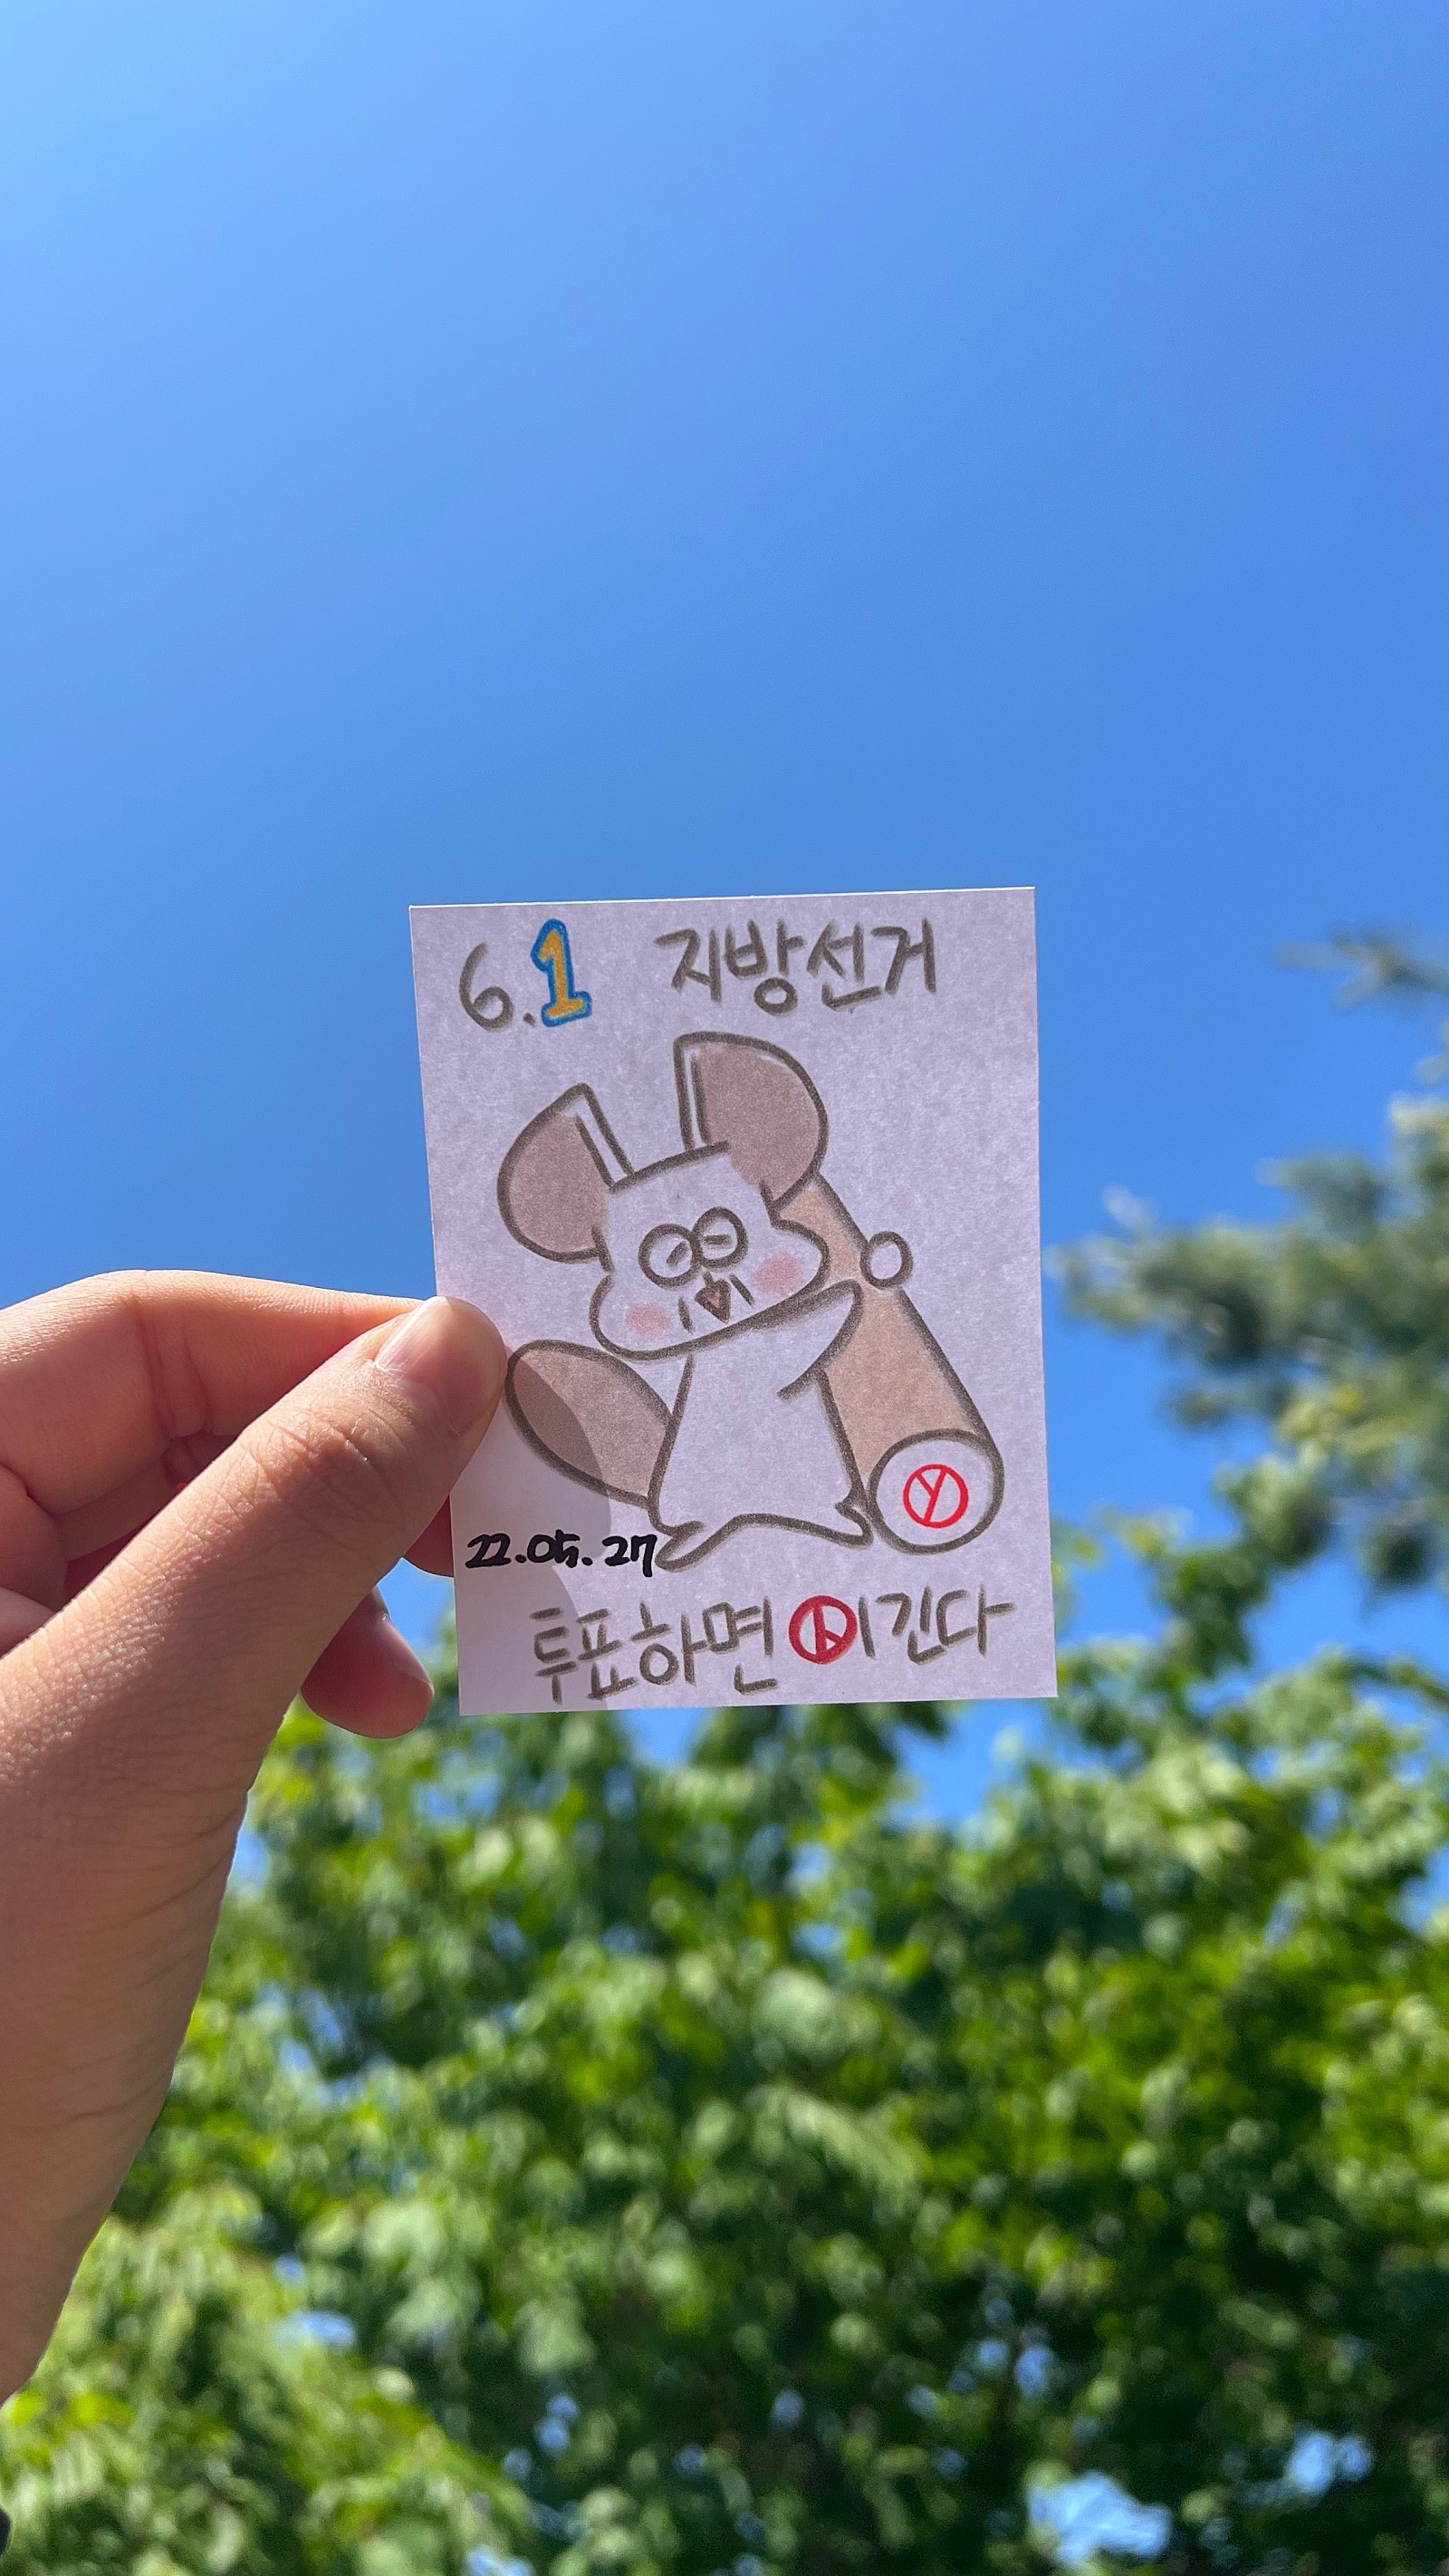 6.1 지방선거
22.05.27
투표하면 이긴다